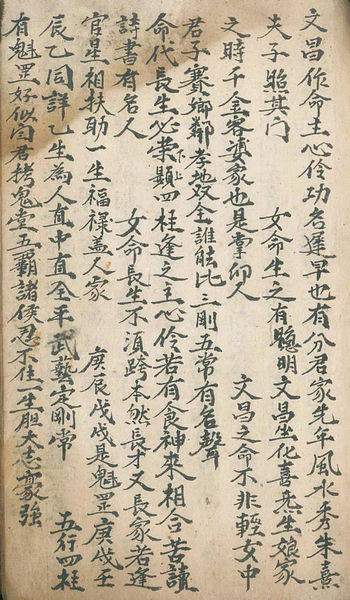 文昌作命主心伶功名遲早也有分君家先年風水秀朱熹
夫子照其门 女命生之有聰明 文昌坐化喜忝生娘家
之時千金客婆家也是掌仰人 文昌之命不非輕女中
君子賽鄉鄰孝地双全誰能比三剛五常有名聲
命代長生必荣顯四柱逢之主心伶若有食神來相合苦讀
上下
詩書有名人 女命長生不須跨本然長才又長家若逢
官星相扶助一生福禄盖人家 庚辰戊戌是魁罡庚戌壬
辰乙同詳乙生為人直中直全平 武藝定剛常 五行四柱
有魁罡好似闫君拷鬼堂五霸諸侯忍不住一生胆大志豪強